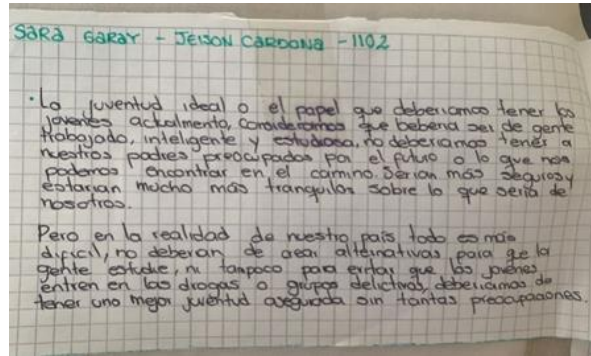 SARA GARAY - JEISON CARDONA - 1102
· La juventud ideal o el papel que deberiamos tener los
jovenes actualmente, consideramos que beberia ser de gente
trabajado, inteligente y estudiosa, no deberiamos tener a
nuestros padres preocupados por el futuro o lo que nos
podamos encontrar en el camino. Serian más seguros y
estarian mucho más tranquilos sobre lo que seria de
nosotros.
Pero en la realidad de nuestro pais todo es más
dificil, no deberian de crear alternativas, para que la
gente estudie, ni tampoco para evitar que los jovenes
entren en las drogas o grupos delictivos, deberiamos de
tener una mejor juventud asegurada sin tantas preocupaciones.